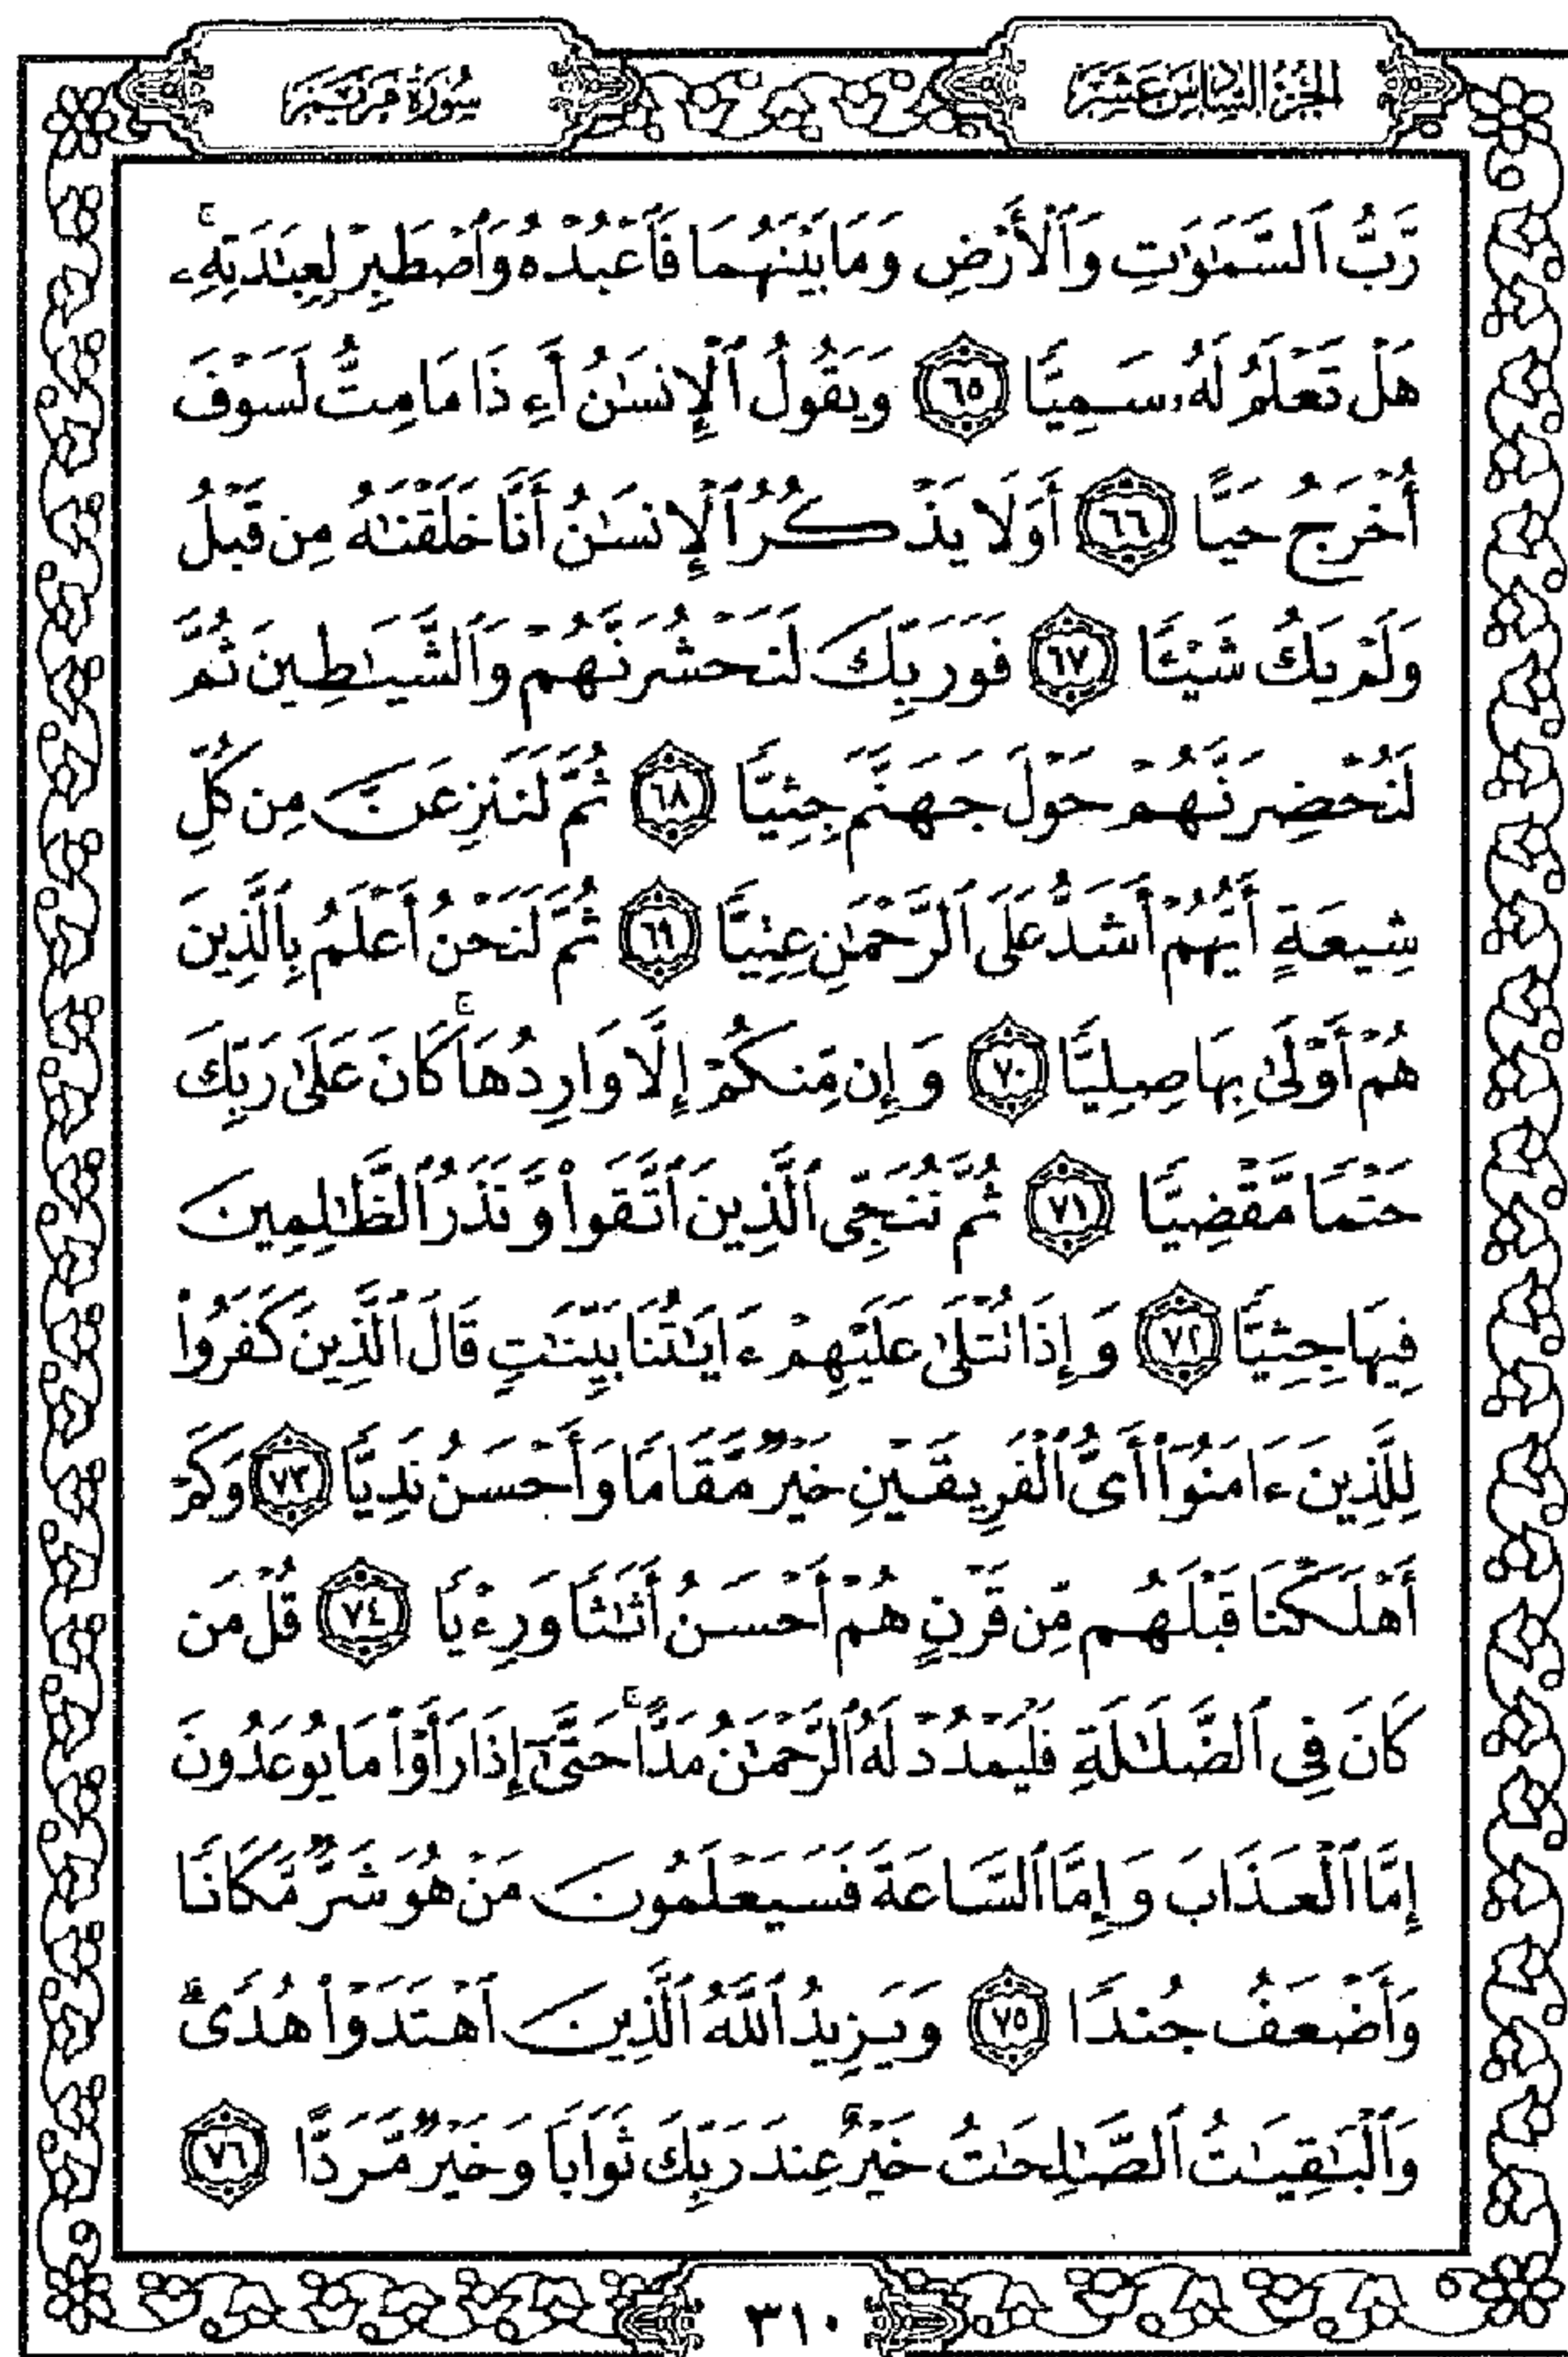 الجزء السادس عشر
سورة مريم
رَّبُّ ٱلسَّمَٰوَٰتِ وَٱلْأَرْضِ وَمَا بَيْنَهُمَا فَٱعْبُدْهُ وَٱصْطَبِرْ لِعِبَٰدَتِهِۦ ۚ
هَلْ تَعْلَمُ لَهُۥ سَمِيًّا ٦٥ وَيَقُولُ ٱلْإِنسَٰنُ أَءِذَا مَا مِتُّ لَسَوْفَ
أُخْرَجُ حَيًّا ٦٦ أَوَلَا يَذْكُرُ ٱلْإِنسَٰنُ أَنَّا خَلَقْنَٰهُ مِن قَبْلُ
وَلَمْ يَكُ شَيْـًٔا ٦٧ فَوَرَبِّكَ لَنَحْشُرَنَّهُمْ وَٱلشَّيَٰطِينَ ثُمَّ
لَنُحْضِرَنَّهُمْ حَوْلَ جَهَنَّمَ جِثِيًّا ٦٨ ثُمَّ لَنَنزِعَنَّ مِن كُلِّ
شِيعَةٍ أَيُّهُمْ أَشَدُّ عَلَى ٱلرَّحْمَٰنِ عِتِيًّا ٦٩ ثُمَّ لَنَحْنُ أَعْلَمُ بِٱلَّذِينَ
هُمْ أَوْلَىٰ بِهَا صِلِيًّا ٧٠ وَإِن مِّنكُمْ إِلَّا وَارِدُهَا ۚ كَانَ عَلَىٰ رَبِّكَ
حَتْمًا مَّقْضِيًّا ٧١ ثُمَّ نُنَجِّى ٱلَّذِينَ ٱتَّقَوا۟ وَّنَذَرُ ٱلظَّٰلِمِينَ
فِيهَا جِثِيًّا ٧٢ وَإِذَا تُتْلَىٰ عَلَيْهِمْ ءَايَٰتُنَا بَيِّنَٰتٍ قَالَ ٱلَّذِينَ كَفَرُوا۟
لِلَّذِينَ ءَامَنُوٓا۟ أَىُّ ٱلْفَرِيقَيْنِ خَيْرٌ مَّقَامًا وَأَحْسَنُ نَدِيًّا ٧٣ وَكَمْ
أَهْلَكْنَا قَبْلَهُم مِّن قَرْنٍ هُمْ أَحْسَنُ أَثَٰثًا وَرِءْيًا ٧٤ قُلْ مَن
كَانَ فِى ٱلضَّلَٰلَةِ فَلْيَمْدُدْ لَهُ ٱلرَّحْمَٰنُ مَدًّا ۚ حَتَّىٰٓ إِذَا رَأَوْا۟ مَا يُوعَدُونَ
إِمَّا ٱلْعَذَابَ وَإِمَّا ٱلسَّاعَةَ فَسَيَعْلَمُونَ مَنْ هُوَ شَرٌّ مَّكَانًا
وَأَضْعَفُ جُندًا ٧٥ وَيَزِيدُ ٱللَّهُ ٱلَّذِينَ ٱهْتَدَوْا۟ هُدًى ۗ
وَٱلْبَٰقِيَٰتُ ٱلصَّٰلِحَٰتُ خَيْرٌ عِندَ رَبِّكَ ثَوَابًا وَخَيْرٌ مَّرَدًّا ٧٦
٣١٠